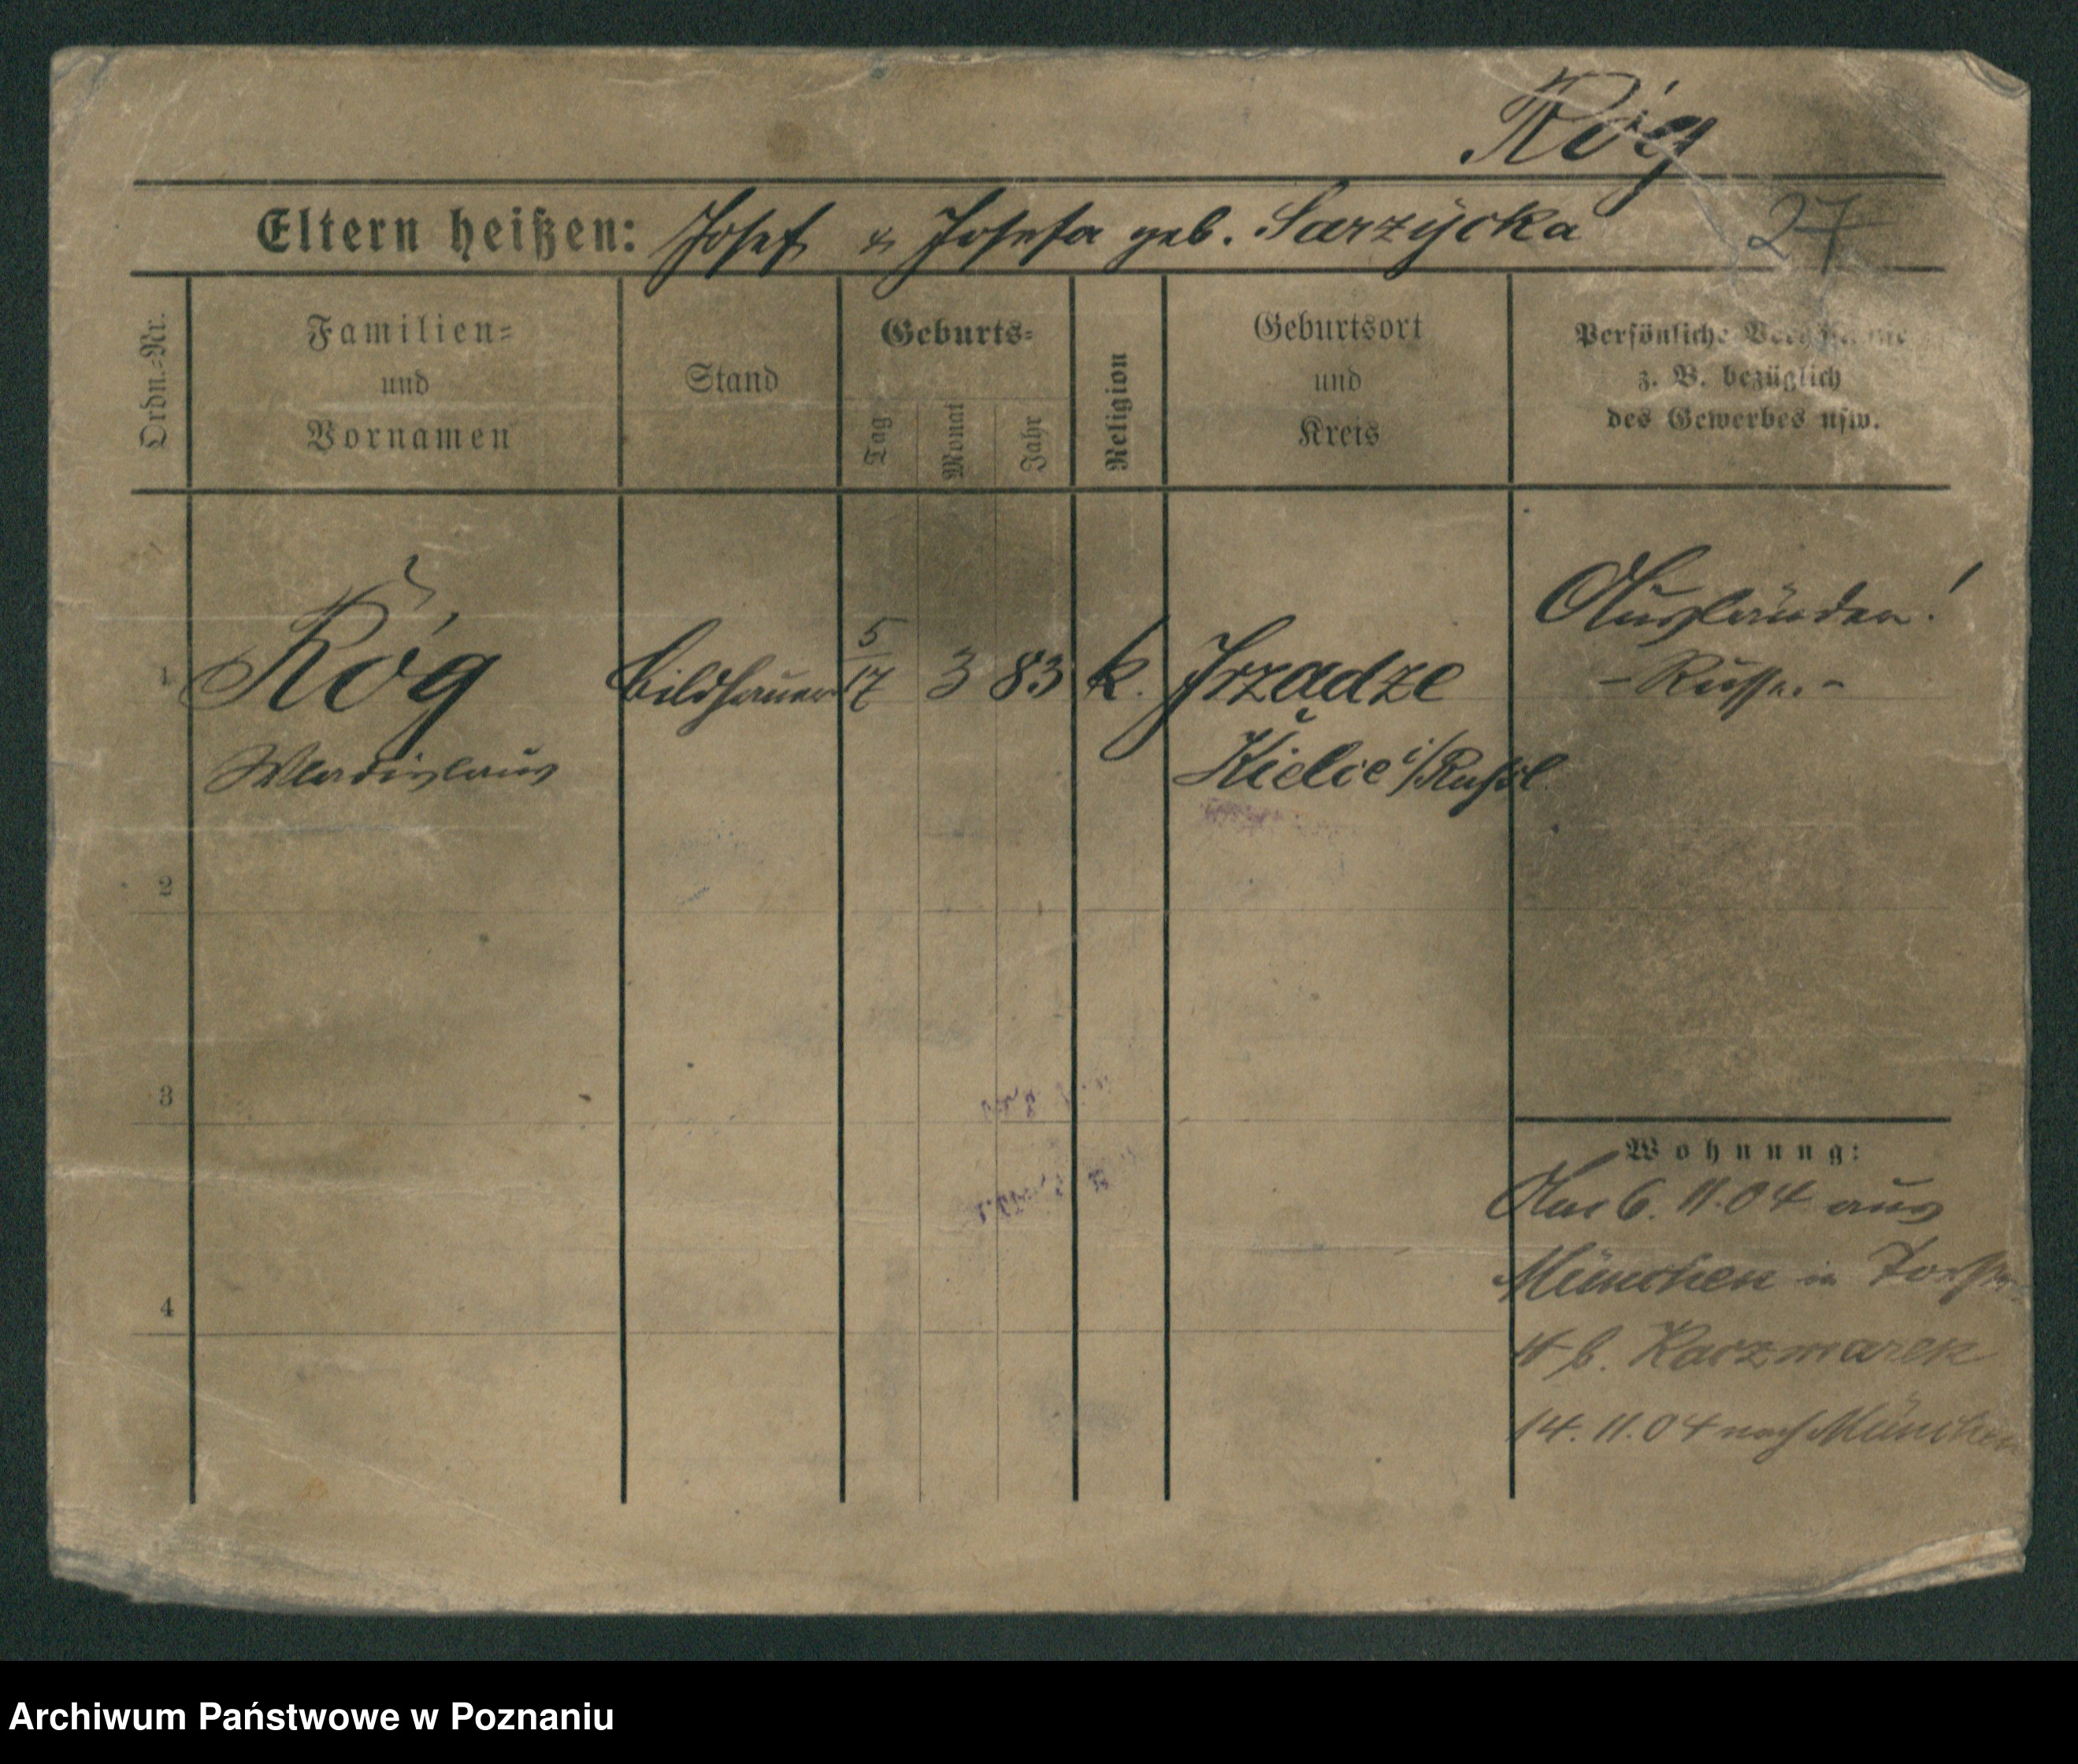 Róg
Eltern heißen: Josef & Josefa geb. Sarzÿcka 27
Ordn.-Nr.
Familien-
und
Vornamen
Stand
Geburts-
Tag
Monat
Jahr
Religion
Geburtsort
und
Kreis
Persönliche
z. B. bezüglich
des Gewerbes usw.
1 Róg Bildhauer 5/17 3 83 k. Irządze Ausländer!
- Russe. -
Wladislaus Kielce i/Rußl.
2
3
4
Wohnung:
Am 6. 11. 04 aus
München in
b. Kaczmarek
14. 11. 04 nach München